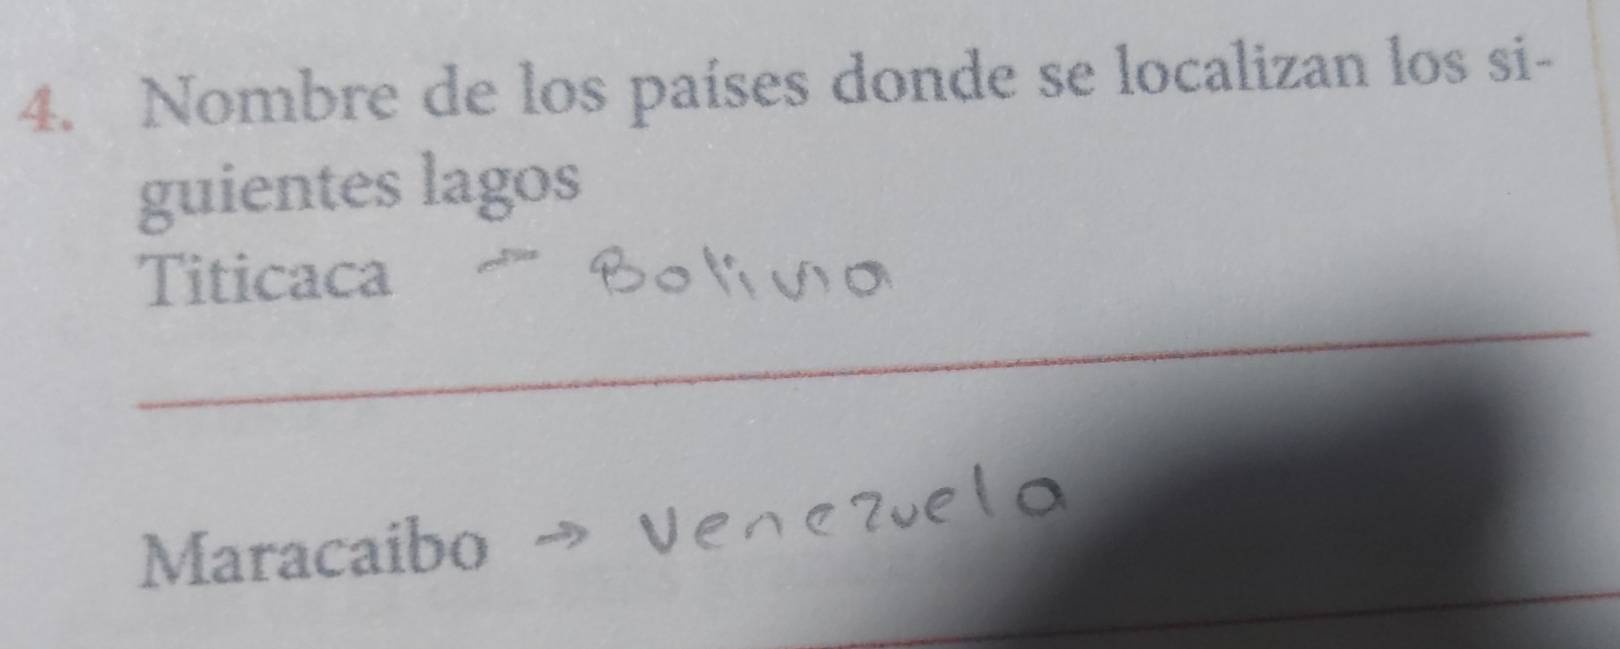 4. Nombre de los países donde se localizan los si-
guientes lagos
Titicaca → Bolivia
Maracaibo → Venezuela